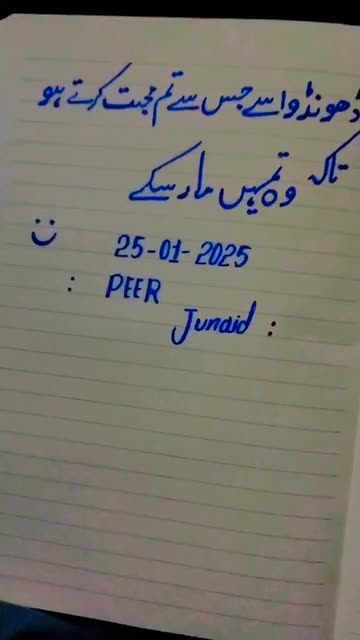 ڈھونڈو اسے جس سے تم محبت کرتے ہو
تاکہ وہ تمہیں مار سکے
25-01-2025
: PEER
Junaid :